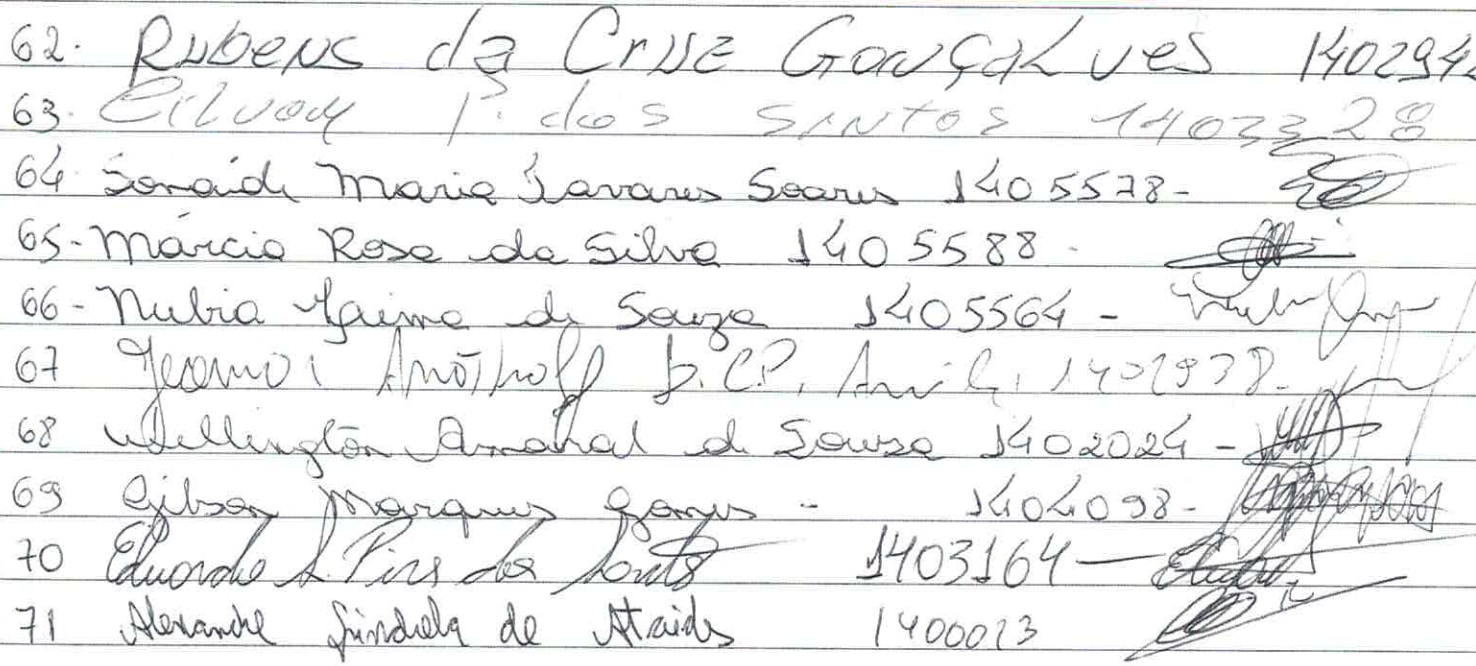 62. Rubens da Cruz Gonçalves 140294
63. P. dos Santos 1403328
64 Maria Tavares Soares 1405578-
65- Márcia Rosa da Silva 1405588 -
66- Nubia Jaime de Souza 1405564 -
67
68 Wellington Amaral de Souza 1402024 -
69 Gibson Marques Gomes - 1404098-
70 Eduardo A. Pires dos Santos 1403164 -
71 Alexandre de Ataides 1400013